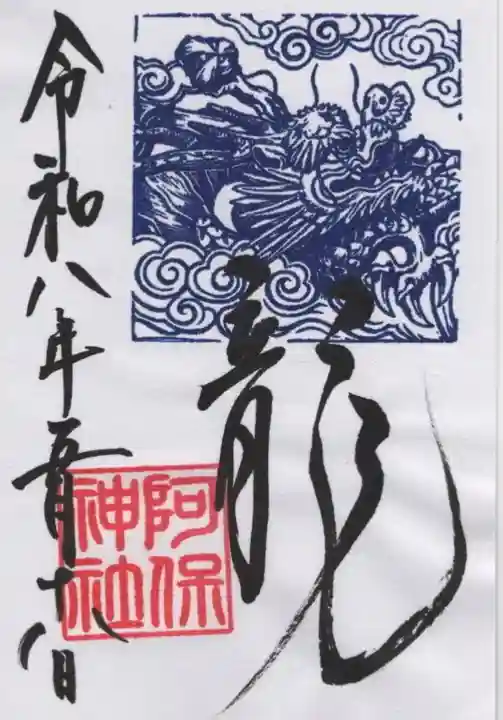 龍
阿保
神社
令和八年五月十八日